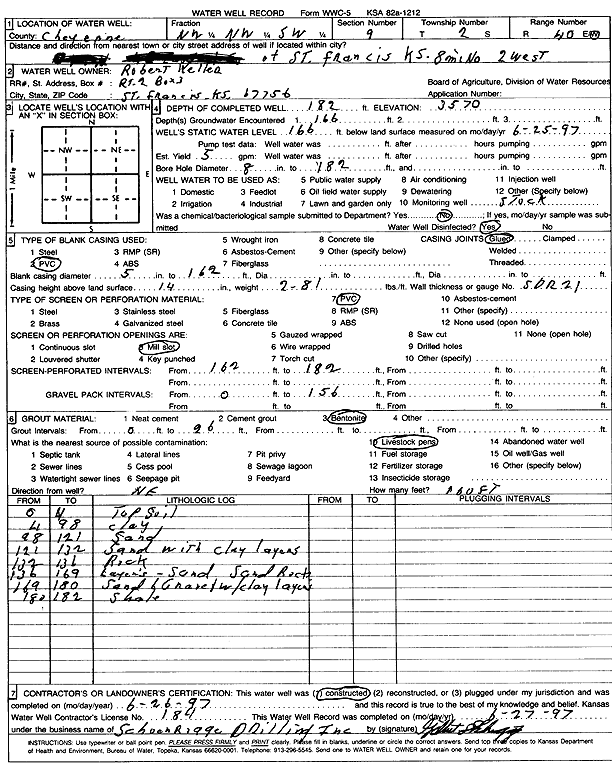 WATER WELL RECORD Form WWC-5 KSA 82a-1212
1 LOCATION OF WATER WELL: Fraction Section Number Township Number Range Number
County: Cheyenne NW ¼ NW ¼ SW ¼ 9 T 2 S R 40 E/W
Distance and direction from nearest town or city street address of well if located within city?
of ST. Francis KS. 8mi No 2 west
2 WATER WELL OWNER: Robert Keller
RR#, St. Address, Box # : RT. 2 Box 3 Board of Agriculture, Division of Water Resources
City, State, ZIP Code : ST. Francis, KS. 67756 Application Number:
3 LOCATE WELL'S LOCATION WITH AN "X" IN SECTION BOX:
N
NW NE
W E
SW SE
S
1 Mile
4 DEPTH OF COMPLETED WELL 182 ft. ELEVATION: 3570
Depth(s) Groundwater Encountered 1. 166 ft. 2. ft. 3. ft.
WELL'S STATIC WATER LEVEL 166 ft. below land surface measured on mo/day/yr 6-25-97
Pump test data: Well water was ft. after hours pumping gpm
Est. Yield 5 gpm: Well water was ft. after hours pumping gpm
Bore Hole Diameter 8 in. to 182 ft., and in. to ft.
WELL WATER TO BE USED AS: 5 Public water supply 8 Air conditioning 11 Injection well
1 Domestic 3 Feedlot 6 Oil field water supply 9 Dewatering 12 Other (Specify below)
2 Irrigation 4 Industrial 7 Lawn and garden only 10 Monitoring well STOCK
Was a chemical/bacteriological sample submitted to Department? Yes No ; If yes, mo/day/yr sample was sub-
mitted Water Well Disinfected? Yes No
5 TYPE OF BLANK CASING USED: 5 Wrought iron 8 Concrete tile CASING JOINTS: Glued Clamped
1 Steel 3 RMP (SR) 6 Asbestos-Cement 9 Other (specify below) Welded
2 PVC 4 ABS 7 Fiberglass Threaded
Blank casing diameter 5 in. to 162 ft., Dia in. to ft., Dia in. to ft.
Casing height above land surface 14 in., weight 2-81 lbs./ft. Wall thickness or gauge No. SDR 21
TYPE OF SCREEN OR PERFORATION MATERIAL: 7 PVC 10 Asbestos-cement
1 Steel 3 Stainless steel 5 Fiberglass 8 RMP (SR) 11 Other (specify)
2 Brass 4 Galvanized steel 6 Concrete tile 9 ABS 12 None used (open hole)
SCREEN OR PERFORATION OPENINGS ARE: 5 Gauzed wrapped 8 Saw cut 11 None (open hole)
1 Continuous slot 3 Mill slot 6 Wire wrapped 9 Drilled holes
2 Louvered shutter 4 Key punched 7 Torch cut 10 Other (specify)
SCREEN-PERFORATED INTERVALS: From 162 ft. to 182 ft., From ft. to ft.
From ft. to ft., From ft. to ft.
GRAVEL PACK INTERVALS: From 0 ft. to 156 ft., From ft. to ft.
From ft. to ft., From ft. to ft.
6 GROUT MATERIAL: 1 Neat cement 2 Cement grout 3 Bentonite 4 Other
Grout Intervals: From 0 ft. to 26 ft., From ft. to ft., From ft. to ft.
What is the nearest source of possible contamination: 10 Livestock pens 14 Abandoned water well
1 Septic tank 4 Lateral lines 7 Pit privy 11 Fuel storage 15 Oil well/Gas well
2 Sewer lines 5 Cess pool 8 Sewage lagoon 12 Fertilizer storage 16 Other (specify below)
3 Watertight sewer lines 6 Seepage pit 9 Feedyard 13 Insecticide storage
Direction from well? NE How many feet?
FROM TO LITHOLOGIC LOG FROM TO PLUGGING INTERVALS
0 4 Top Soil
4 98 clay
98 121 Sand
121 132 Sand with clay layers
132 136 Rock
136 169 Layers - Sand Sand Rock
169 180 Sand & Gravel w/clay layers
180 182 Shale
7 CONTRACTOR'S OR LANDOWNER'S CERTIFICATION: This water well was (1) constructed, (2) reconstructed, or (3) plugged under my jurisdiction and was
completed on (mo/day/year) 6-26-97 and this record is true to the best of my knowledge and belief. Kansas
Water Well Contractor's License No. 189 This Water Well Record was completed on (mo/day/yr) 6-27-97
under the business name of Schoenrogge Drilling Inc by (signature)
INSTRUCTIONS: Use typewriter or ball point pen. PLEASE PRESS FIRMLY and PRINT clearly. Please fill in blanks, underline or circle the correct answers. Send top three copies to Kansas Department
of Health and Environment, Bureau of Water, Topeka, Kansas 66620-0001. Telephone: 913-296-5545. Send one to WATER WELL OWNER and retain one for your records.